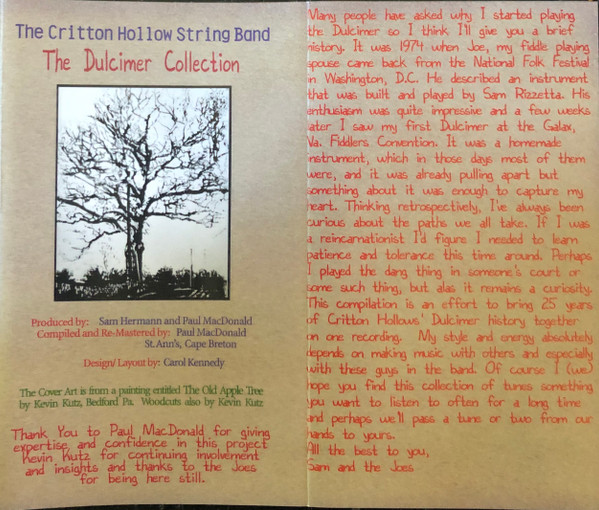 The Critton Hollow String Band
The Dulcimer Collection
Produced by: Sam Hermann and Paul MacDonald
Compiled and Re-Mastered by: Paul MacDonald
St. Ann's, Cape Breton
Design/Layout by: Carol Kennedy
The Cover Art is from a painting entitled The Old Apple Tree
by Kevin Kutz, Bedford Pa. Woodcuts also by Kevin Kutz
Thank You to Paul MacDonald for giving
expertise and confidence in this project
Kevin Kutz for continuing involvement
and insights and thanks to the Joes
for being here still.
Many people have asked why I started playing
the Dulcimer so I think I'll give you a brief
history. It was 1974 when Joe, my fiddle playing
spouse came back from the National Folk Festival
in Washington, D.C. He described an instrument
that was built and played by Sam Rizzetta. His
enthusiasm was quite impressive and a few weeks
later I saw my first Dulcimer at the Galax,
Va. Fiddlers Convention. It was a homemade
instrument, which in those days most of them
were, and it was already pulling apart but
something about it was enough to capture my
heart. Thinking retrospectively, I've always been
curious about the paths we all take. If I was
a reincarnationist I'd figure I needed to learn
patience and tolerance this time around. Perhaps
I played the dang thing in someone's court or
some such thing, but alas it remains a curiosity.
This compilation is an effort to bring 25 years
of Critton Hollows' Dulcimer history together
on one recording. My style and energy absolutely
depends on making music with others and especially
with these guys in the band. Of course I (we)
hope you find this collection of tunes something
you want to listen to often for a long time
and perhaps we'll pass a tune or two from our
hands to yours.
All the best to you,
Sam and the Joes